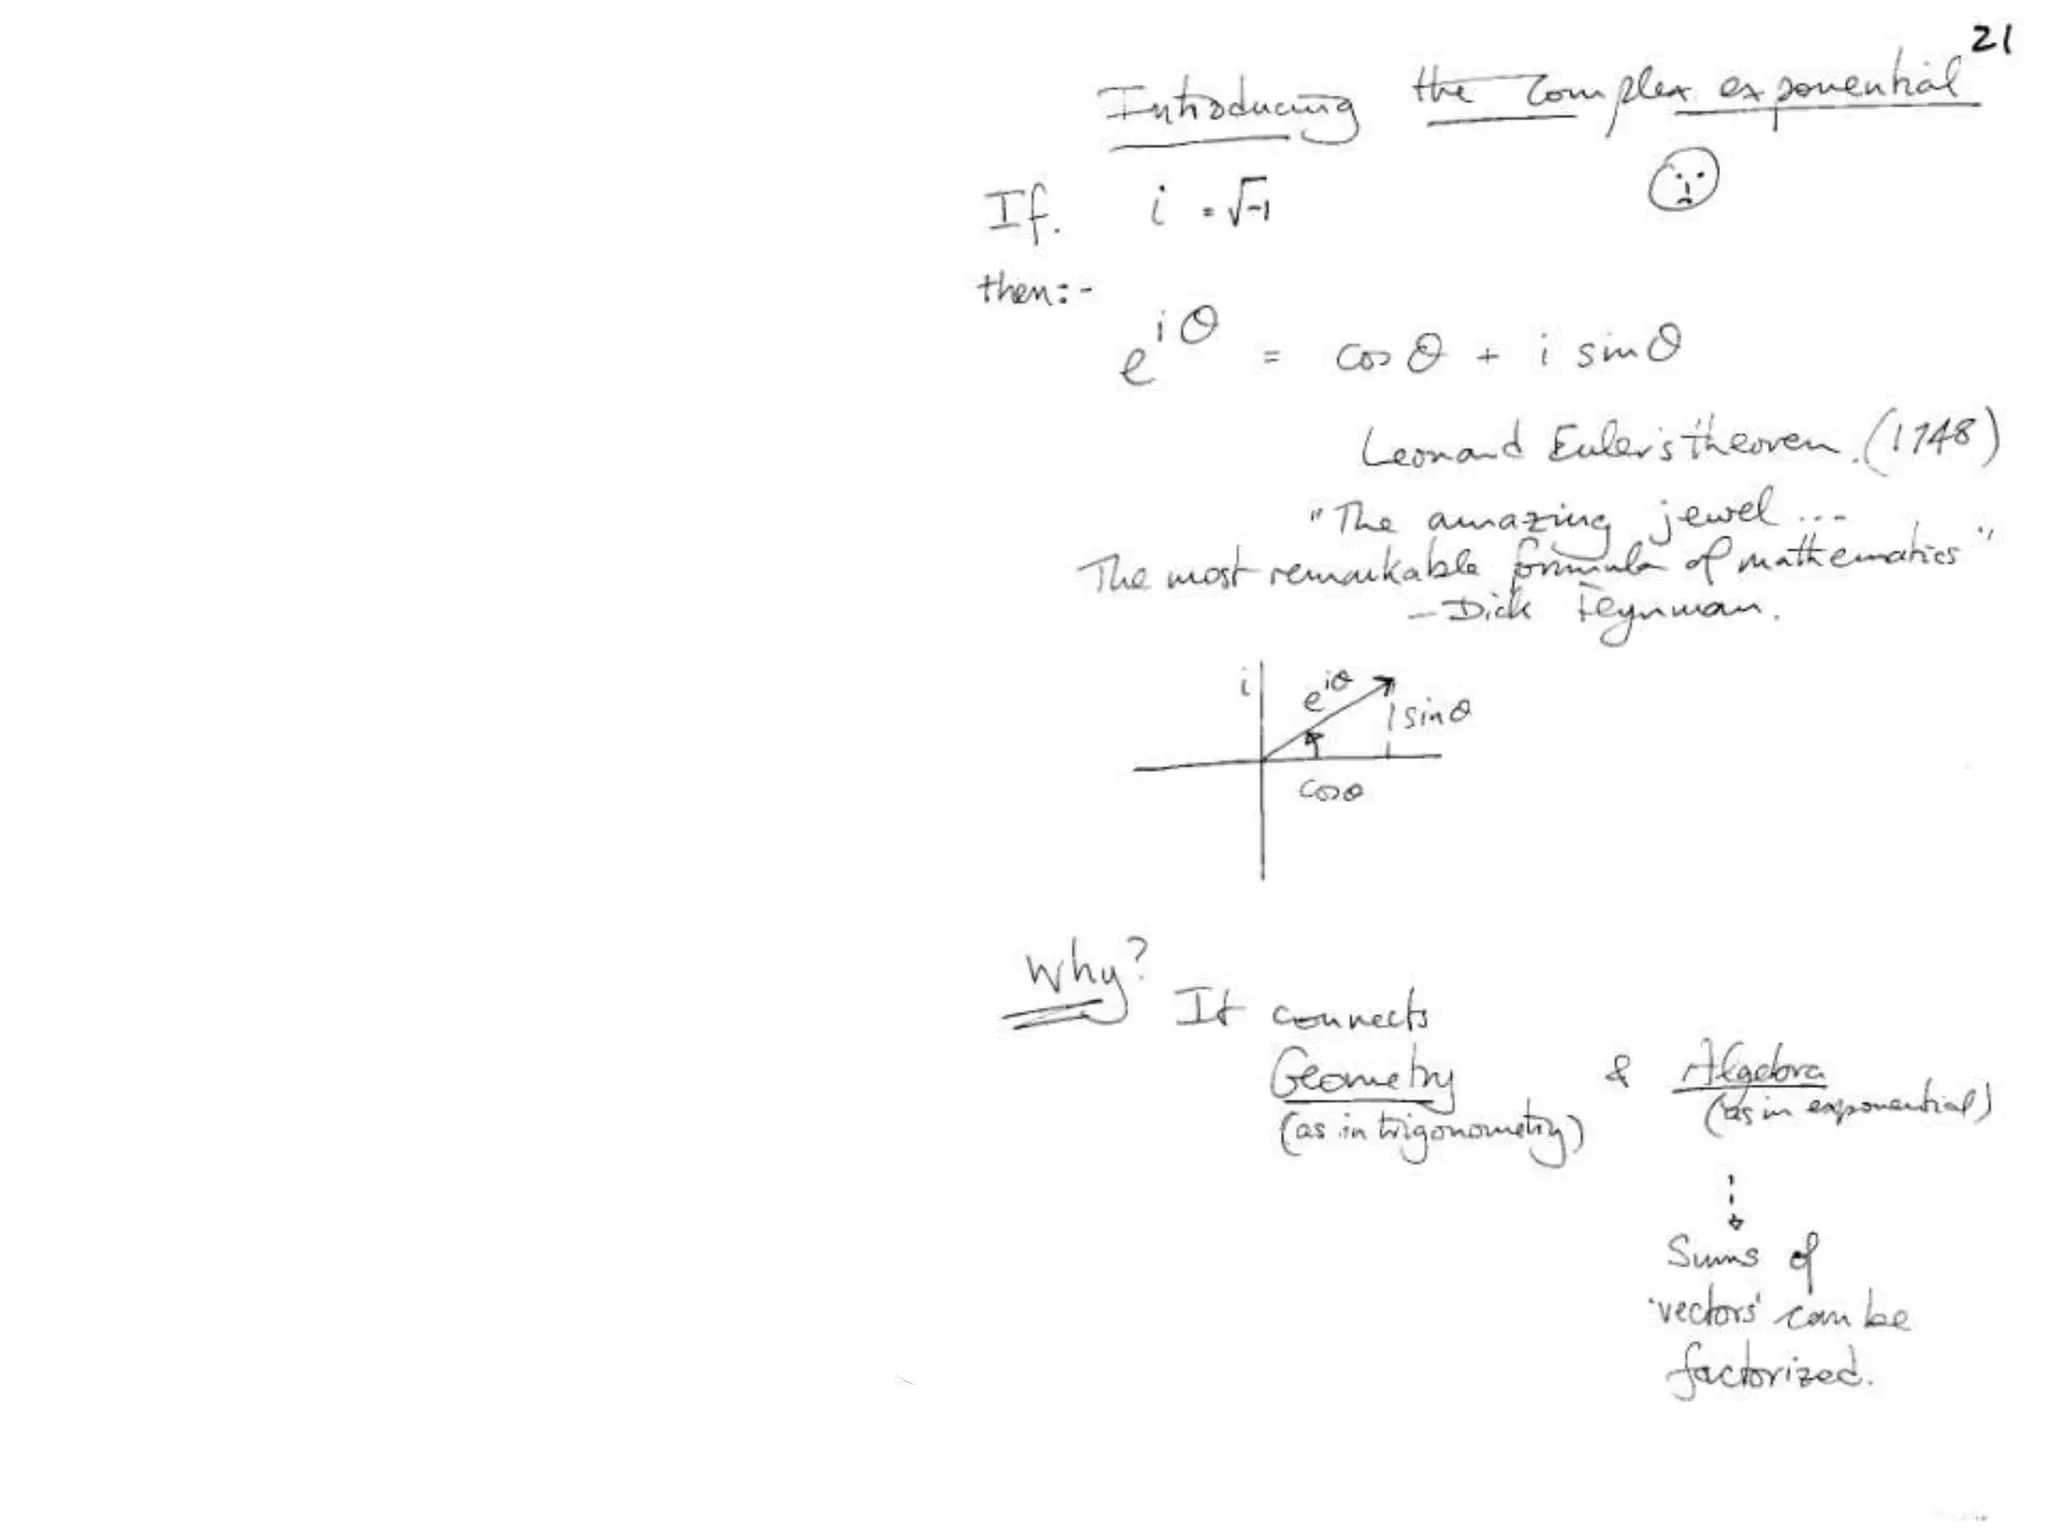 21
Introducing the complex exponential
If. i = √-1
then:-
e^{iθ} = cos θ + i sin θ
Leonard Euler's theorem. (1748)
"The amazing jewel ...
The most remarkable formula of mathematics"
– Dick Feynman.
i
e^{iθ}
sin θ
cos θ
Why?
It connects
Geometry & Algebra
(as in trigonometry) (as in exponential)
Sums of
'vectors' can be
factorized.